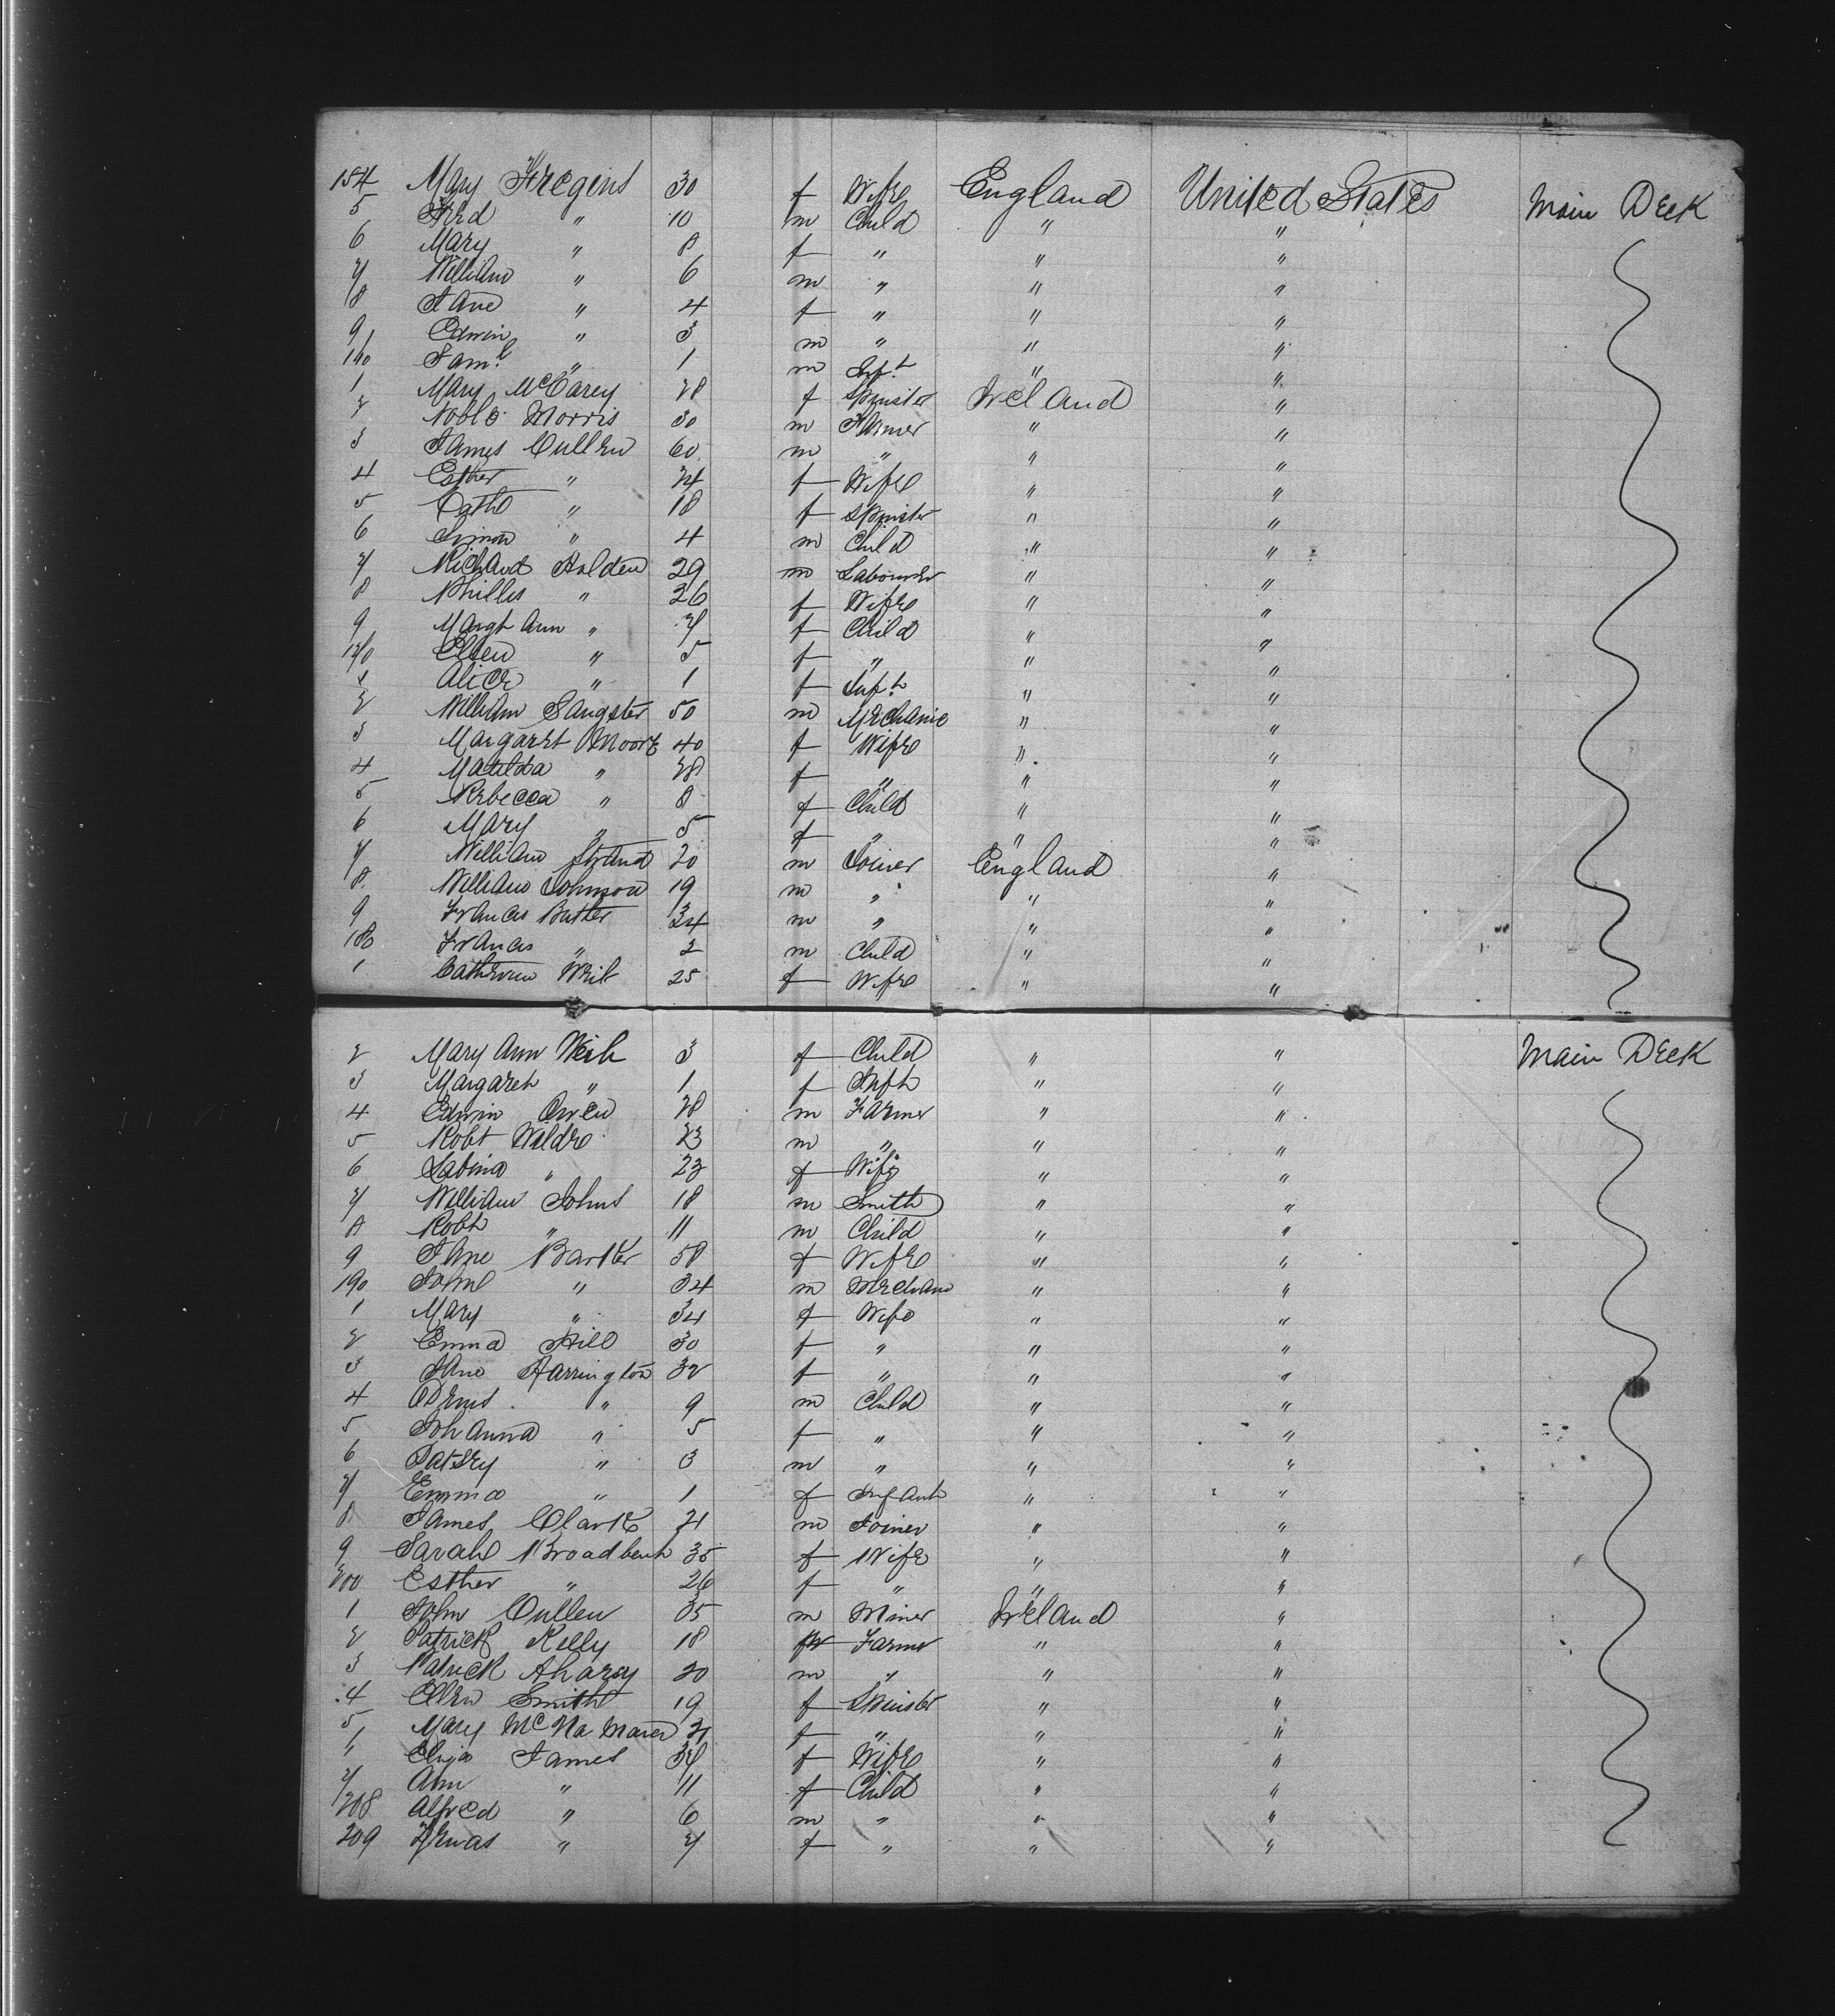 154 Mary Fregins 30 f Wife England United States Main Deck
5 Fred " 10 m Child " "
6 Mary " 8 f " " "
7 William " 6 m " " "
8 Jane " 4 f " " "
9 Edwin " 3 m " " "
160 Saml " 1 m Inft " "
1 Mary McCarey 28 f Spinster Ireland "
2 Noble Morris 30 m Farmer " "
3 James Cullen 60 m " " "
4 Esther " 24 f Wife " "
5 Cath " 18 f Spinster " "
6 Simon " 4 m Child " "
7 Richard Holden 29 m Labourer " "
8 Phillis " 26 f Wife " "
9 Margt Ann " 7 f Child " "
170 Ellen " 5 f " " "
1 Alice " 1 f Inft " "
2 William Sangster 50 m Mechanic " "
3 Margaret Moore 40 f Wife " "
4 Matilda " 28 f " " "
5 Rebecca " 8 f Child " "
6 Mary " 5 f " " "
7 William Strand 20 m Joiner England "
8 William Johnson 19 m " " "
9 Francis Batter 34 m " " "
180 Francis " 2 m Child " "
1 Catherine Weib 25 f Wife " "
2 Mary Ann Weib 3 f Child " " Main Deck
3 Margaret " 1 f Inft " "
4 Edwin Owen 28 m Farmer " "
5 Robt Wilde 23 m " " "
6 Sabina " 23 f Wife " "
7 William Johns 18 m Smith " "
8 Robt " 11 m Child " "
9 Jane Barker 58 f Wife " "
190 John " 34 m " "
1 Mary " 34 f Wife " "
2 Emma Hill 30 f " " "
3 Jane Harrington 32 f " " "
4 " 9 m Child " "
5 Johanna " 5 f " " "
6 Patsey " 3 m " " "
7 Emma " 1 f Infant " "
8 James Clark 21 m Joiner " "
9 Sarah Broadbent 35 f Wife " "
200 Esther " 26 f " " "
1 John Cullen 35 m Miner Ireland "
2 Patrick Kelly 18 m Farmer " "
3 Patrick 20 m " " "
4 Ellen Smith 19 f Spinster " "
5 Mary McNamara 21 f " " "
Eliza James 34 f Wife " "
7 Ann " 11 f Child " "
208 Alfred " 6 m " " "
209 " 7 f " " "